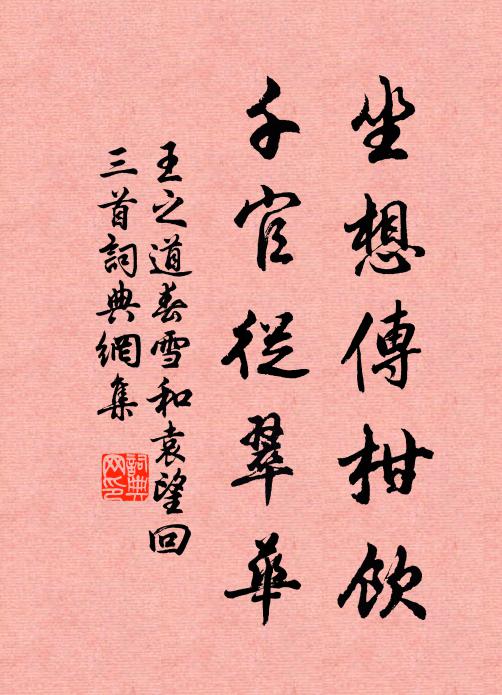 坐想傳柑飲
千官從翠華
王之道春雪和袁望回
三首詞典網集
詞典
网印